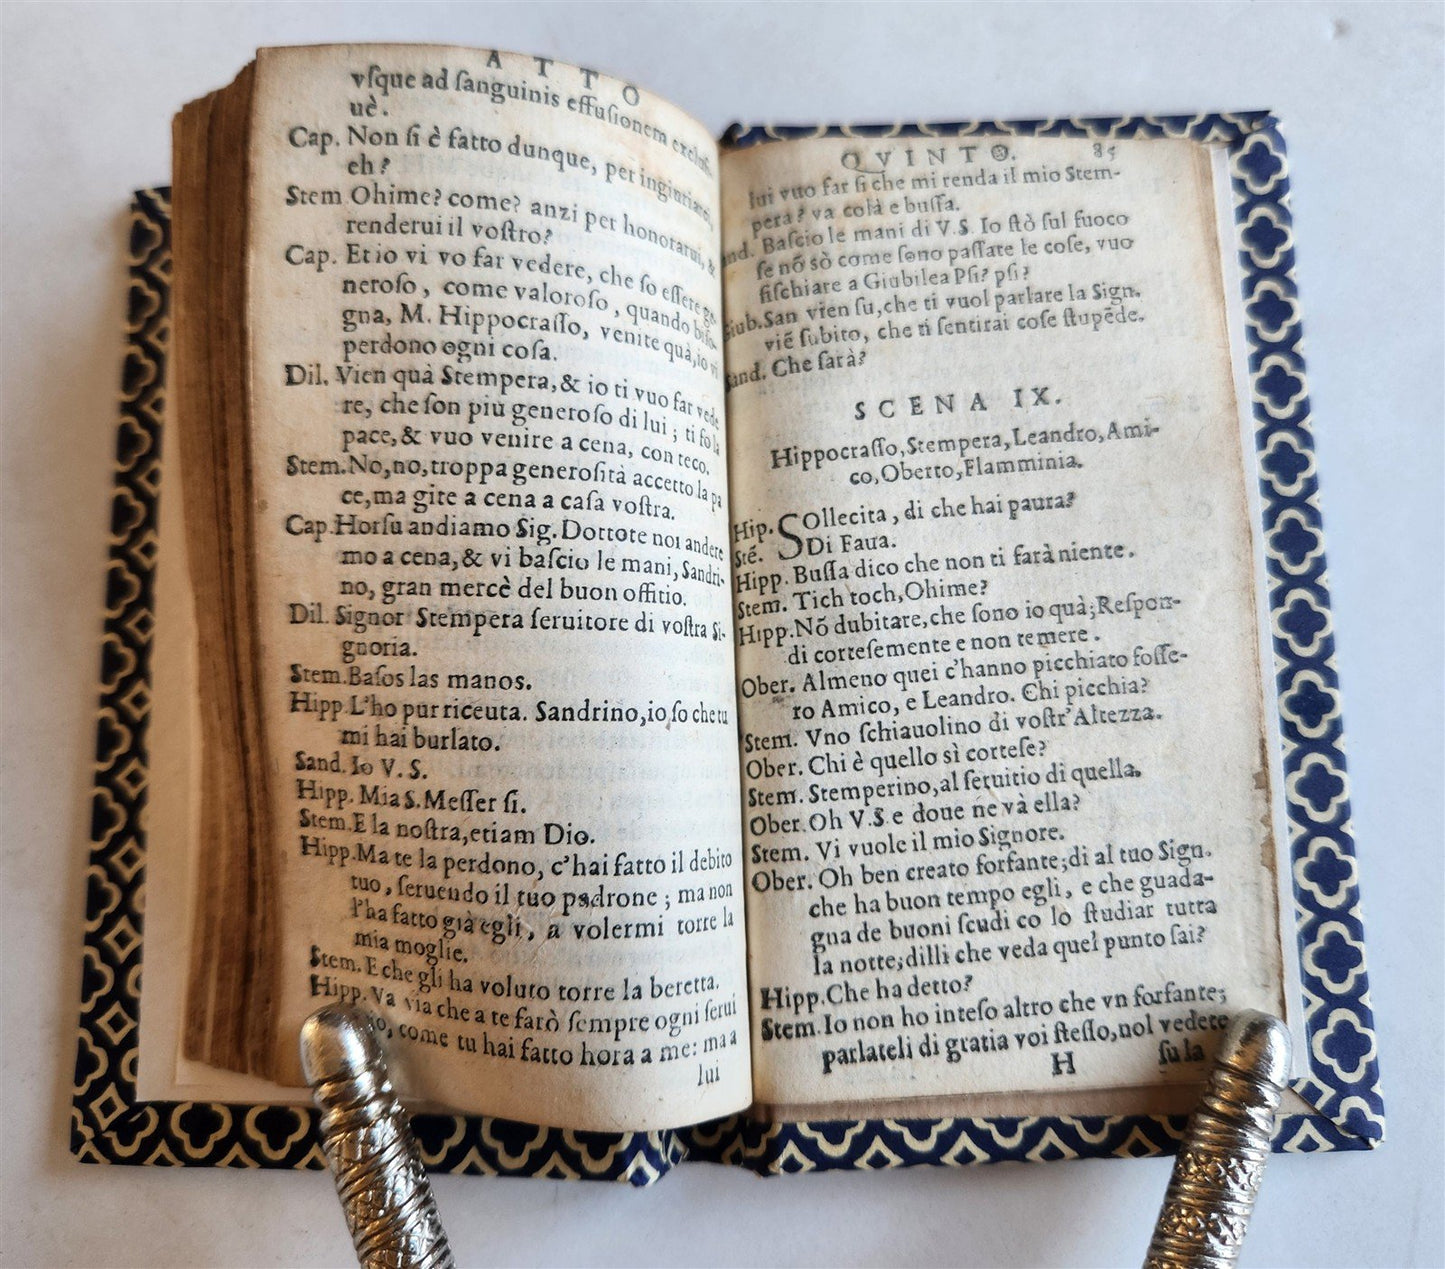 ATTO
vſque ad ſanguinis effuſionem excluſi-
uè.
Cap. Non ſi è fatto dunque, per ingiuriarui,
eh?
Stem Ohime? come? anzi per honorarui, &
renderui il voſtro?
Cap. Et io vi vo far vedere, che ſo eſſere ge-
neroſo, come valoroſo, quando biſo-
gna, M. Hippocraſſo, venite quà, io vi
perdono ogni coſa.
Dil. Vien quà Stempera, & io ti vuo far vede
re, che ſon piu generoſo di lui; ti fo la
pace, & vuo venire a cena, con teco.
Stem. No, no, troppa generoſità accetto la pa
ce, ma gite a cena a caſa voſtra.
Cap. Horſu andiamo Sig. Dottote noi andere
mo a cena, & vi baſcio le mani, Sandri-
no, gran mercè del buon offitio.
Dil. Signor Stempera ſeruitore di voſtra Si-
gnoria.
Stem. Baſos las manos.
Hipp. L'ho pur riceuta. Sandrino, io ſo che tu
mi hai burlato.
Sand. Io V. S.
Hipp. Mia S. Meſſer ſi.
Stem. E la noſtra, etiam Dio.
Hipp. Ma te la perdono, c'hai fatto il debito
tuo, ſeruendo il tuo padrone; ma non
l'ha fatto già egli, a volermi torre la
mia moglie.
Stem. E che gli ha voluto torre la beretta.
Hipp. Va via che a te farò ſempre ogni ſerui
io, come tu hai fatto hora a me: ma a
lui
QVINTO. 85
lui vuo far ſi che mi renda il mio Stem-
pera? va colà e buſſa.
and. Baſcio le mani di V. S. Io ſtò ſul fuoco
ſe nõ sò come ſono paſſate le coſe, vuo
fiſchiare a Giubilea Pſi? pſi?
iub. San vien ſu, che ti vuol parlare la Sign.
viẽ ſubito, che ti ſentirai coſe ſtupẽde.
Sand. Che ſarà?
SCENA IX.
Hippocraſſo, Stempera, Leandro, Ami-
co, Oberto, Flamminia.
Hip. SOllecita, di che hai paura?
Stẽ. Di Faua.
Hipp. Buſſa dico che non ti farà niente.
Stem. Tich toch, Ohime?
Hipp. Nõ dubitare, che ſono io quà; Reſpon-
di corteſemente e non temere.
Ober. Almeno quei c'hanno picchiato foſſe-
ro Amico, e Leandro. Chi picchia?
Stem. Vno ſchiauolino di voſtr'Altezza.
Ober. Chi è quello sì corteſe?
Stem. Stemperino, al ſeruitio di quella.
Ober. Oh V.S. e doue ne và ella?
Stem. Vi vuole il mio Signore.
Ober. Oh ben creato forfante; di al tuo Sign.
che ha buon tempo egli, e che guada-
gna de buoni ſcudi co lo ſtudiar tutta
la notte; dilli che veda quel punto ſai?
Hipp. Che ha detto?
Stem. Io non ho inteſo altro che vn forfante;
parlateli di gratia voi ſteſſo, nol vedete
H ſu la